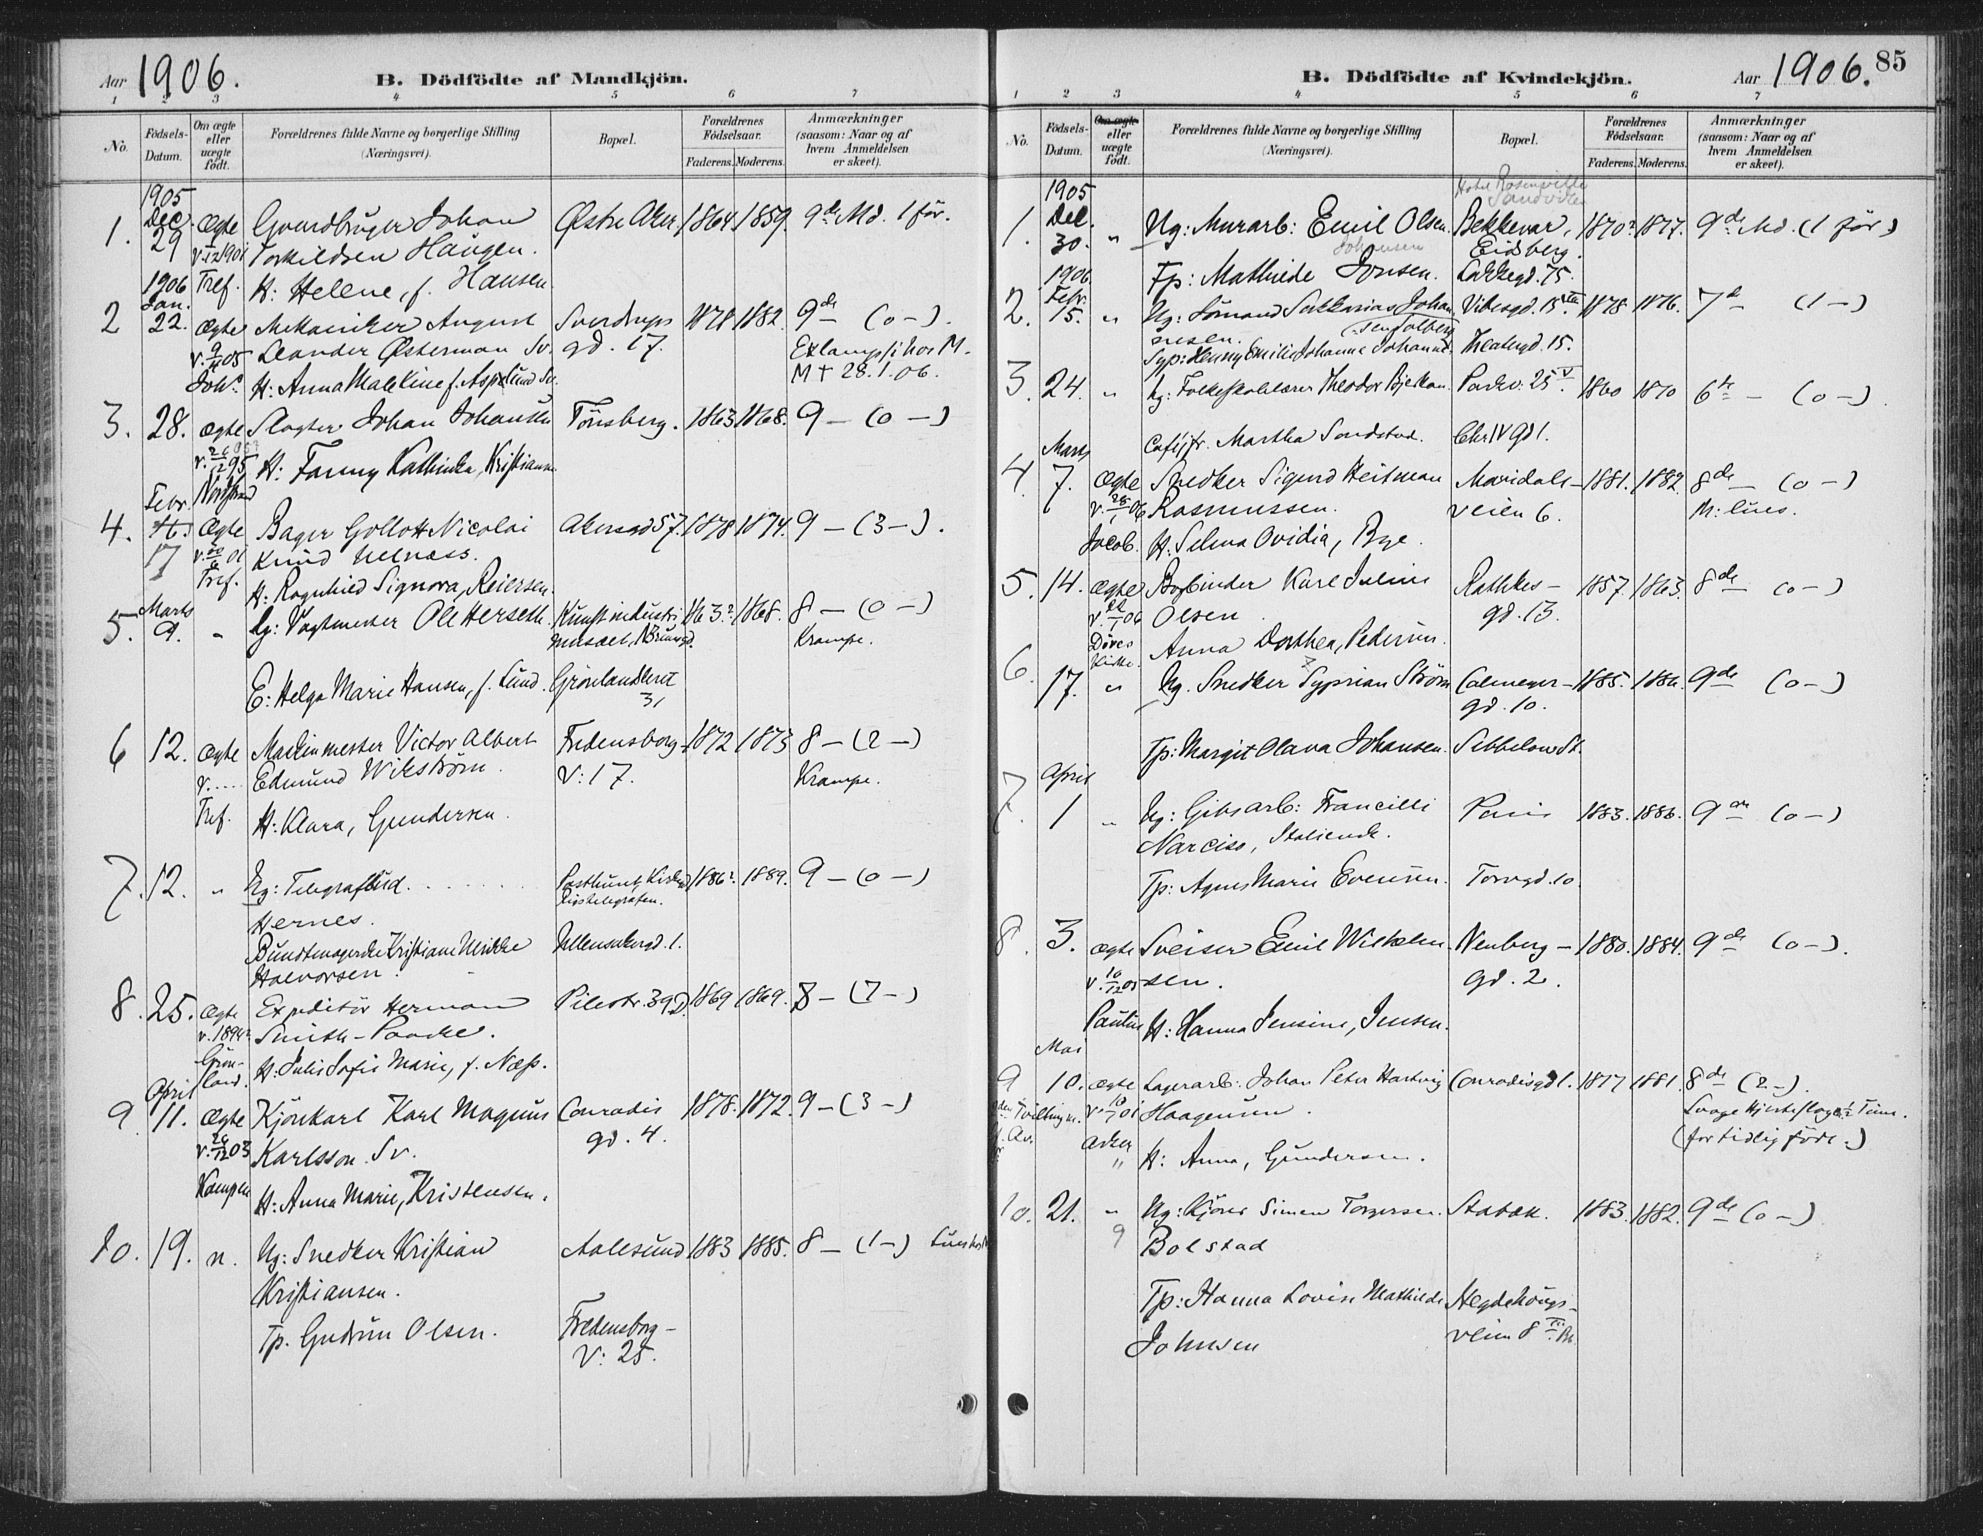 Aar 1906.
B. Dödfödte af Mandkjön.
1 2 3 4 5 6 7
No.
Födsels-Datum.
Om ægte eller uægte födt.
Forældrenes fulde Navne og borgerlige Stilling (Næringsvei).
Bopæl.
Forældrenes Födselsaar.
Faderens. Moderens.
Anmærkninger (saasom: Naar og af hvem Anmeldelsen er skeet).
1905
1. Dec. 29 Ægte Gaardbruger Johan Østre Aker. 1864 1859. 9de Md. 1 før.
Torkildsen Haugen.
Tref. H: Helene, f. Hansen
1906
Jan.
2 22. Ægte Mekaniker August Sverdrups 1878 1882. 9de — (0 —).
v. 9/11 05 Leander Østerman Sv. gd. 17. Eklampsi hos M.
Joh. H: Anna Malkine f. Asplund Sv. M † 28.1.06.
3. 28. Ægte Slagter Johan Johansen Tönsberg. 1863 1868. 9 — (0 —)
v. 26/12 95 H: Fanny Kathinka, Kristiansen
Nordstrand
Febr.
4. 17 Ægte Bager Gottolt Nicolai Akersgd 57. 1878 1874. 9 — (3 —).
Knud Helness.
Tref. H: Ragnhild Signora, Reiersen.
Marts
5. 9. " Ug: Vagtmester Ole Herseth. Kunstindustri 1863? 1868. 8 — (0 —)
museet, Krampe.
E: Helga Marie Hansen, f. Lund. Grønlandsleret 31
6 12. Ægte Maskinmester Victor Albert Fredensborg 1872 1873 8 — (2 —)
v. .... Edmund Wikstrøm. V: 17. Krampe.
Tref. H: Klara, Gundersen.
7. 12. " Ug: Telegrafbud ........ 1886? 1889. 9 — (0 —)
Hernes.
Bundtmagerske Kristiane Ulrikke Ullensakergd. 1.
Halvorsen.
8. 25. Ægte Expeditör Herman Pilestr. 39 D. 1869 1869. 8 — (7 —)
v. 1894? Smith-Paacke.
Grøn-land. H: Julie Sofie Marie, f. Næss.
April
9 11. Ægte Kjörekarl Karl Magnus Conradis 1878. 1872. 9 — (3 —)
v. 26/12 03 Karlsson. Sv. gd. 4.
Kampen H: Anna Marie, Kristensen.
10. 19. n. Ug: Snedker Kristian Aalesund 1883 1885. 8 — (1 —)
Kristiansen.
Tp. Gudrun Olsen. Fredensborg-
V: 25.
B. Dödfödte af Kvindekjön.
Aar 1906. 85
1 2 3 4 5 6 7
No.
Födsels-Datum.
Om ægte eller uægte födt.
Forældrenes fulde Navne og borgerlige Stilling (Næringsvei).
Bopæl.
Forældrenes Födselsaar.
Faderens. Moderens.
Anmærkninger (saasom: Naar og af hvem Anmeldelsen er skeet).
Hotel Rosenvilde
Sandvika
1905
1. Dec. 30. " Ug: Murarb: Emil Olsen. Bekkevar, 1870? 1877. 9de Md. (1 før)
Johansen Eidsberg.
1906 Tp: Mathilde Jonsen. Lakkegd. 75.
2. Febr. 15. " Ug: Sömand Sakkarias Johan- Vibesgd. 15 1878 1876. 7de (1 —)
nesen. Solberg
Syp: Henny Emilie Johanne Johanns. Theatergd. 15.
3. 24. " Ug: Folkeskolelærer Theodor Bjerkan. Parkv. 25 V. 1860 1870 6te — (0 —).
Cafijfr. Martha Sandstad. Chr. IV gd 1.
Marts
4. 7. Ægte Snedker Sigurd Heitman Maridals- 1881. 1882. 8de — (0 —)
v. 28/1 06 Rasmussen. veien 6. M: lues.
Jacob. H. Selma Ovidia, Bye.
5. 14. Ægte Bogbinder Karl Julius Rathkes- 1857. 1863. 8de — (0 —)
Olsen. gd. 13.
Døves Kirke. Anna Dorthea, Pedersen.
6. 17. " Ug. Snedker Syprian Strøm Calmeyer- 1885. 1886. 9de (0 —)
gd. 10.
Tp: Margit Olava Johansen. Sibbelows St.
April
7. 1 " Ug: Gibsarb: Francilli Paris 1883. 1886. 9de (0 —)
Narciso, Italiensk.
Tp: Agnes Marie Evensen. Torvgd. 10.
8. 3. Ægte Sveiser Emil Wilhelm- Neuberg- 1880. 1884. 9de (0 —).
v. 10/12 05 sen. gd. 2.
Paulus H: Hanna Jensine, Jensen.
Mai
9 10. Ægte Lagerarb. Johan Peter Hartvig Conradisgd 1. 1877 1881. 8de (2 —).
Tvilling Haagensen. Svage Hjerteslag 1/2 Time.
Aker H: Anna, Gundersen. (for tidlig född.)
10. 21. " Ug: Kjörer Simen Torgersen. Stabæk. 1883. 1882. 9de (0 —)
Bolstad
Tp: Hanna Lovise Mathilde Hegdehaugs-
Johnsen veien 8